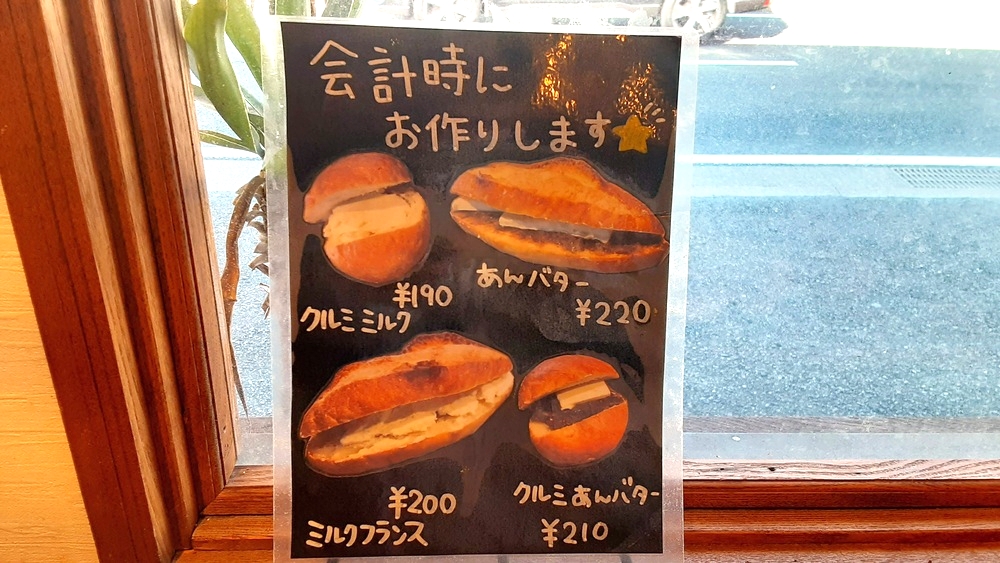 会計時に
お作りします
¥190
クルミミルク
あんバター
¥220
¥200
ミルクフランス
クルミあんバター
¥210